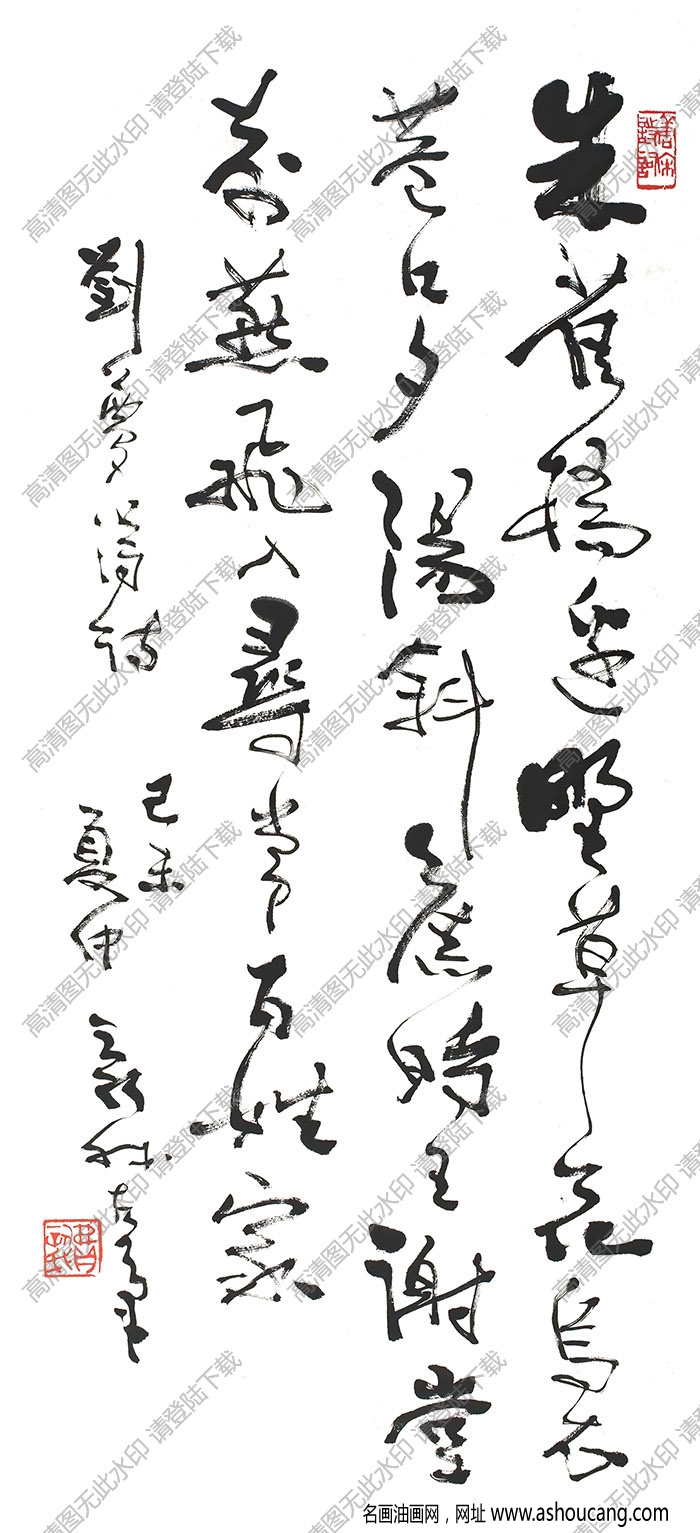 朱雀橋邊野草花烏衣
巷口夕陽斜舊時王謝堂
前燕飛入尋常百姓家
劉夢得詩
己未
夏仲
新我左筆
高清图无此水印 请登陆下载
名画油画网，网址 www.ashoucang.com